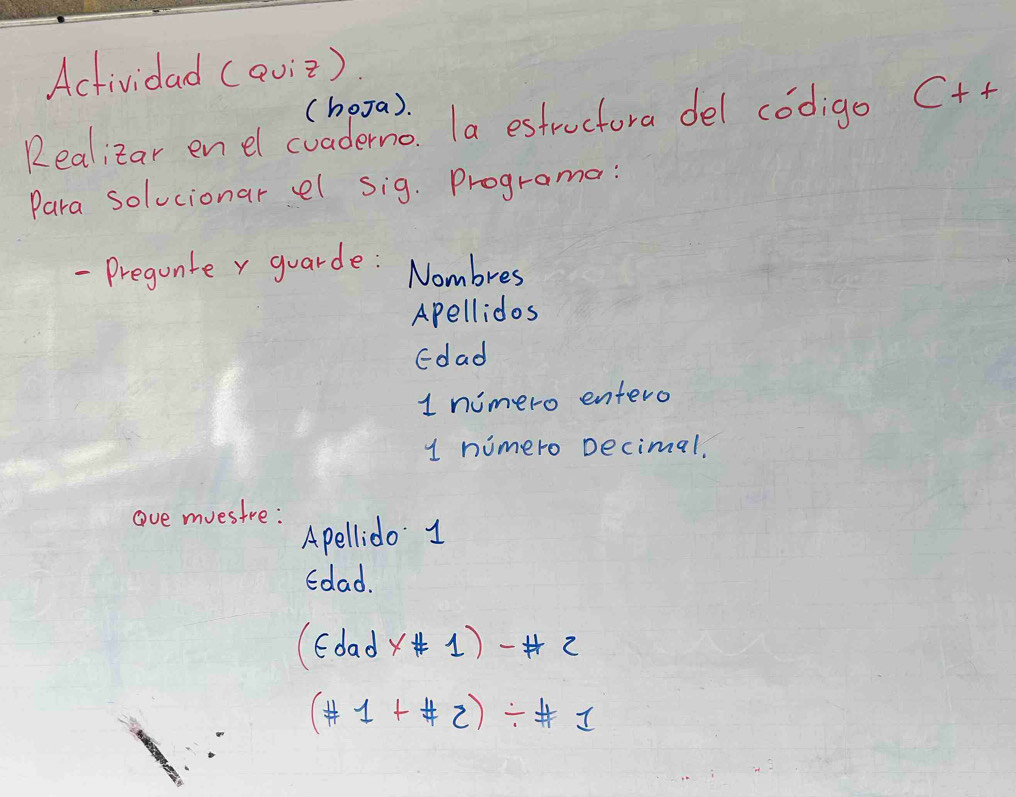 Actividad (Quiz).
(hoja).
Realizar en el cuaderno. la estructura del código C++
Para solucionar el sig. Programa:
- Pregunte y guarde: Nombres
Apellidos
Edad
1 número entero
1 número Decimal.
Que muestre:
Apellido 1
Edad.
(Edad x # 1) - # 2
(# 1 + # 2) ÷ # 1